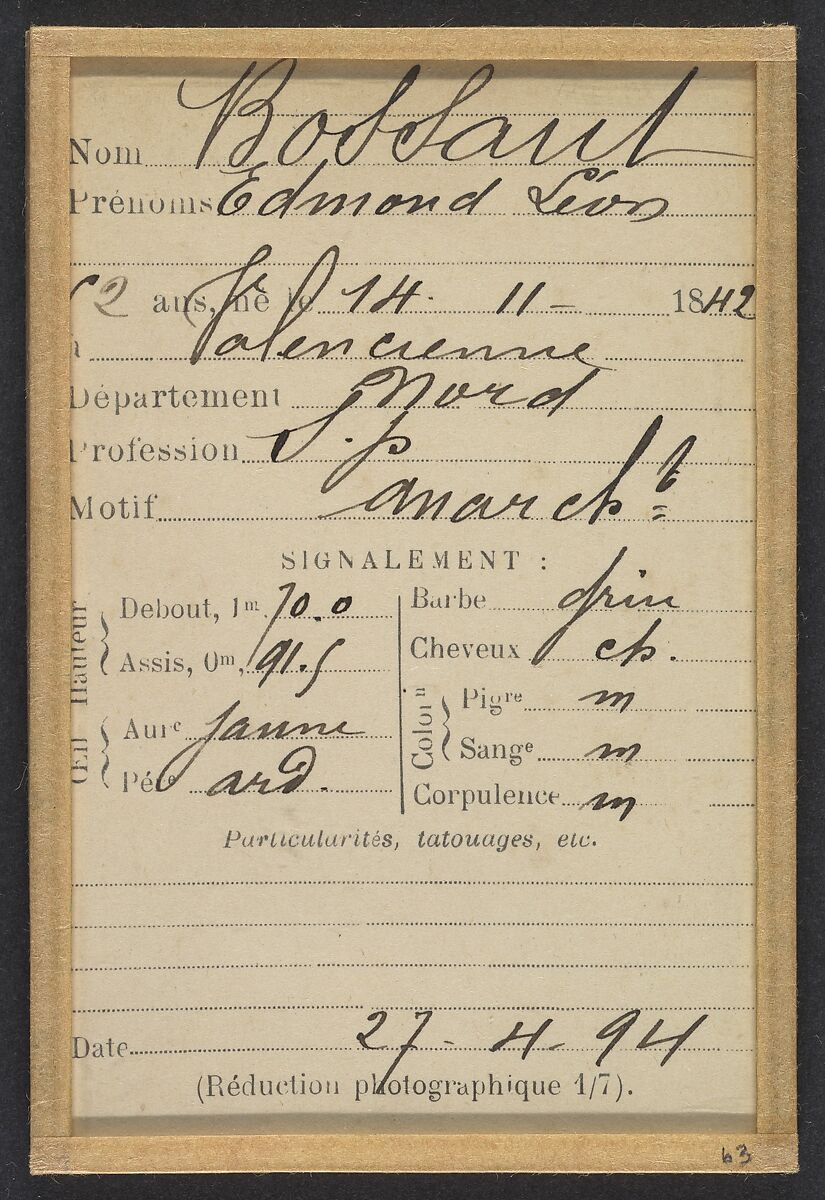 Nom Bossant
Prénoms Edmond Léon
52 ans, né le 14. 11 - 1842
à Valencienne
Département Nord
Profession S. p
Motif anarcht
SIGNALEMENT :
Hauteur
Debout, 1m, 70.0
Assis, 0m, 91.5
Œil
Aure jaune
Pére ard.
Barbe grin
Cheveux ch.
Colorn
Pigre m
Sange m
Corpulence m
Particularités, tatouages, etc.
Date 27 - 4 - 94
(Réduction photographique 1/7).
63